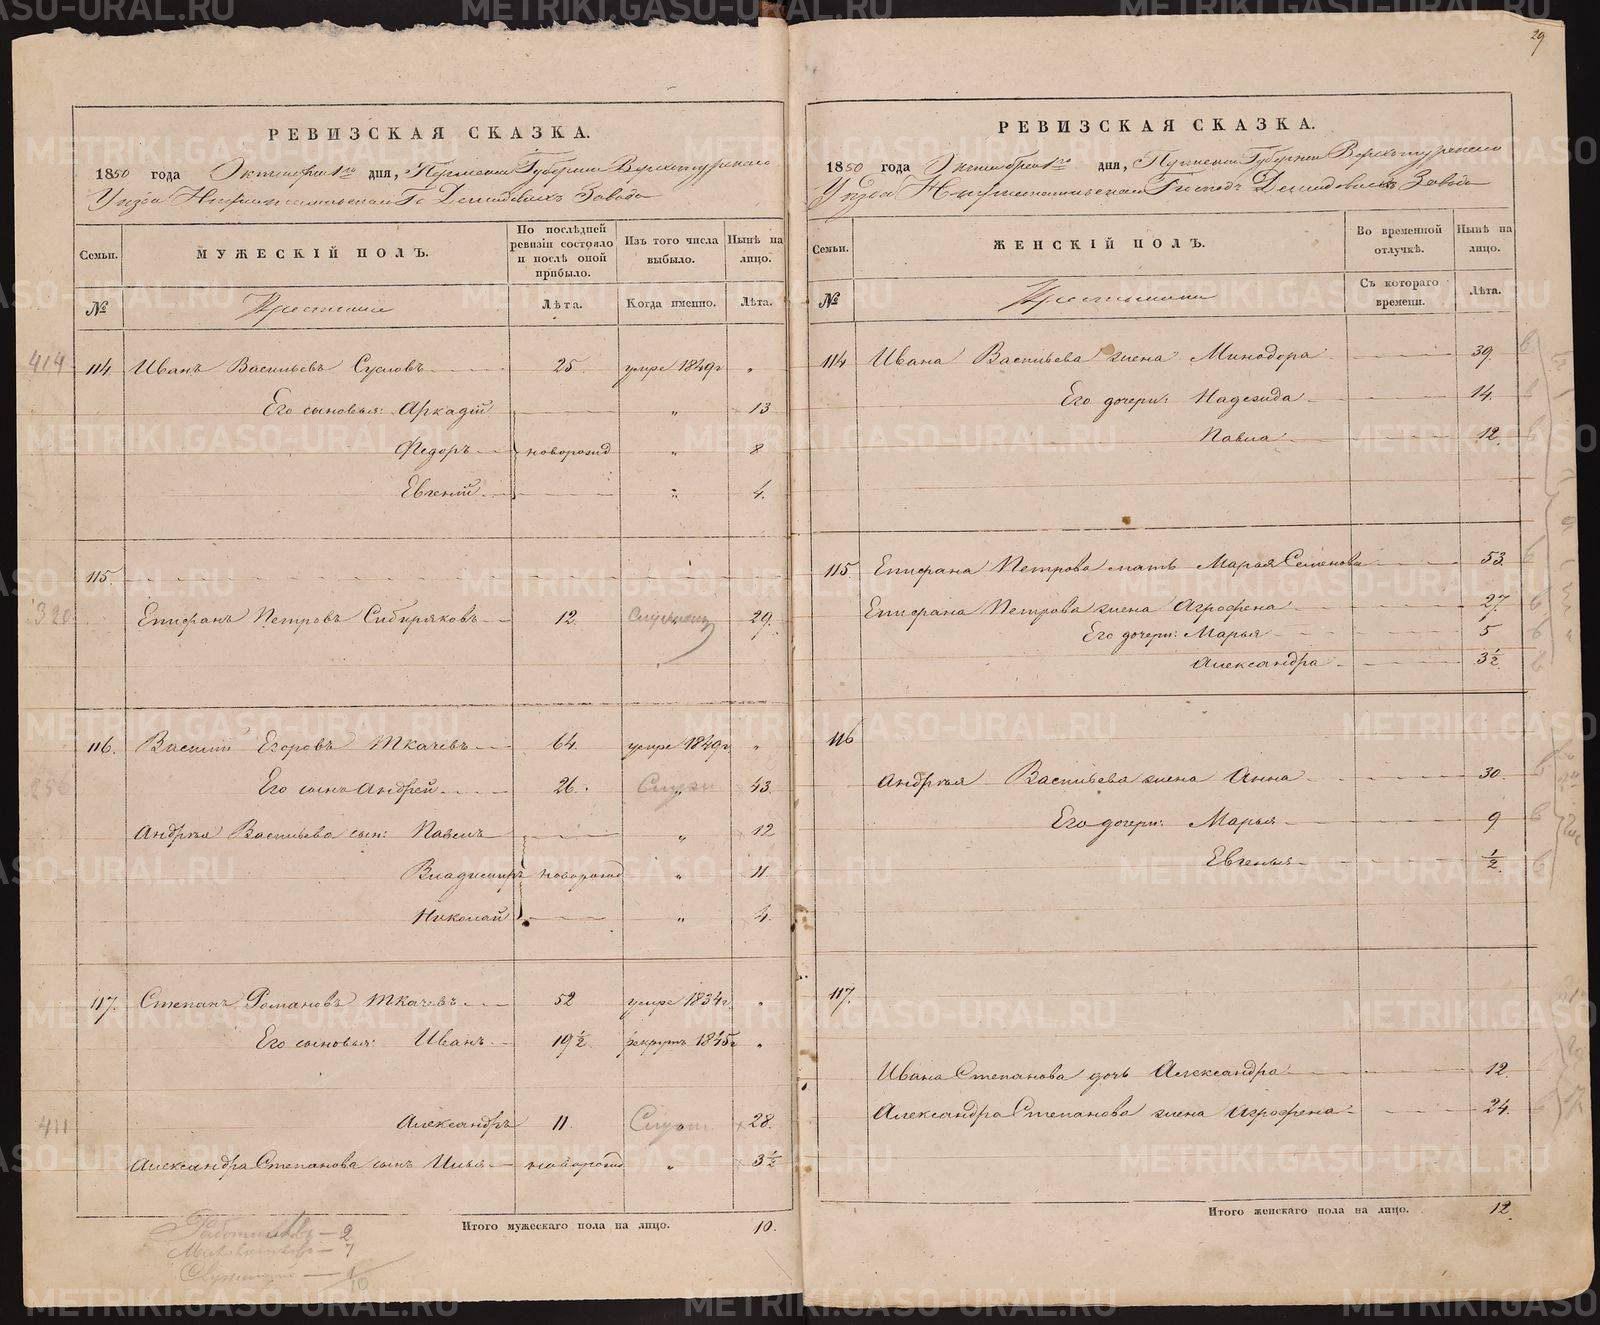 РЕВИЗСКАЯ СКАЗКА.
1850 года Октября 1го дня, Пермской Губернии Верхотурского
Уѣзда Нижнетагильскаго Гг Демидовыхъ Завода
Семьи.
МУЖЕСКІЙ ПОЛЪ.
По послѣдней ревизіи состояло и послѣ оной прибыло.
Изъ того числа выбыло.
Нынѣ на лицо.
№
Крестьяне
Лѣта.
Когда именно.
Лѣта.
414 114. Иванъ Васильевъ Сусловъ 25. умре 1849г „
Его сыновья: Аркадій „ 13
Федоръ новорожд „ 8
Евгеній „ 4.
115.
320 Епифанъ Петровъ Сибиряковъ 12. 29.
116. Василий Егоровъ Ткачевъ 64. умре 1849г. „
256 Его сынъ Андрей 26. Служ „ 43
Андрѣя Васильева сын: Павелъ „ 12
Владимиръ новорожд „ 11.
Николай „ 4.
117. Степанъ Романовъ Ткачевъ 52 умре 1834г. „
Его сыновья: Иванъ 19½ рекрутъ 1845г „
411 Александръ 11. 28.
Александра Степанова сынъ Илья новорожд „ 3½
Итого мужескаго пола на лицо. 10.
Работниковъ — 2
— 7
— 1
10
29
РЕВИЗСКАЯ СКАЗКА.
1850 года Октября 1го дня, Пермской Губернии Верхотурского
Уѣзда Нижнетагильскаго Господъ Демидовыхъ Завода
Семьи.
ЖЕНСКІЙ ПОЛЪ.
Во временной отлучкѣ.
Нынѣ на лицо.
№
Крестьянки
Съ котораго времени.
Лѣта.
114 Ивана Васильева жена Минодора 39
Его дочери: Надежда 14.
Павла 12.
115. Епифана Петрова мать Марья Семенова 53.
Епифана Петрова жена Агрофена 27.
Его дочери: Марья 5
Александра 3½
116
Андрѣя Васильева жена Анна 30.
Его дочери: Марья 9
Евгенья ½
117.
Ивана Степанова дочь Александра 12.
Александра Степанова жена Агрофена 24.
Итого женскаго пола на лицо. 12.
METRIKI.GASO-URAL.RU